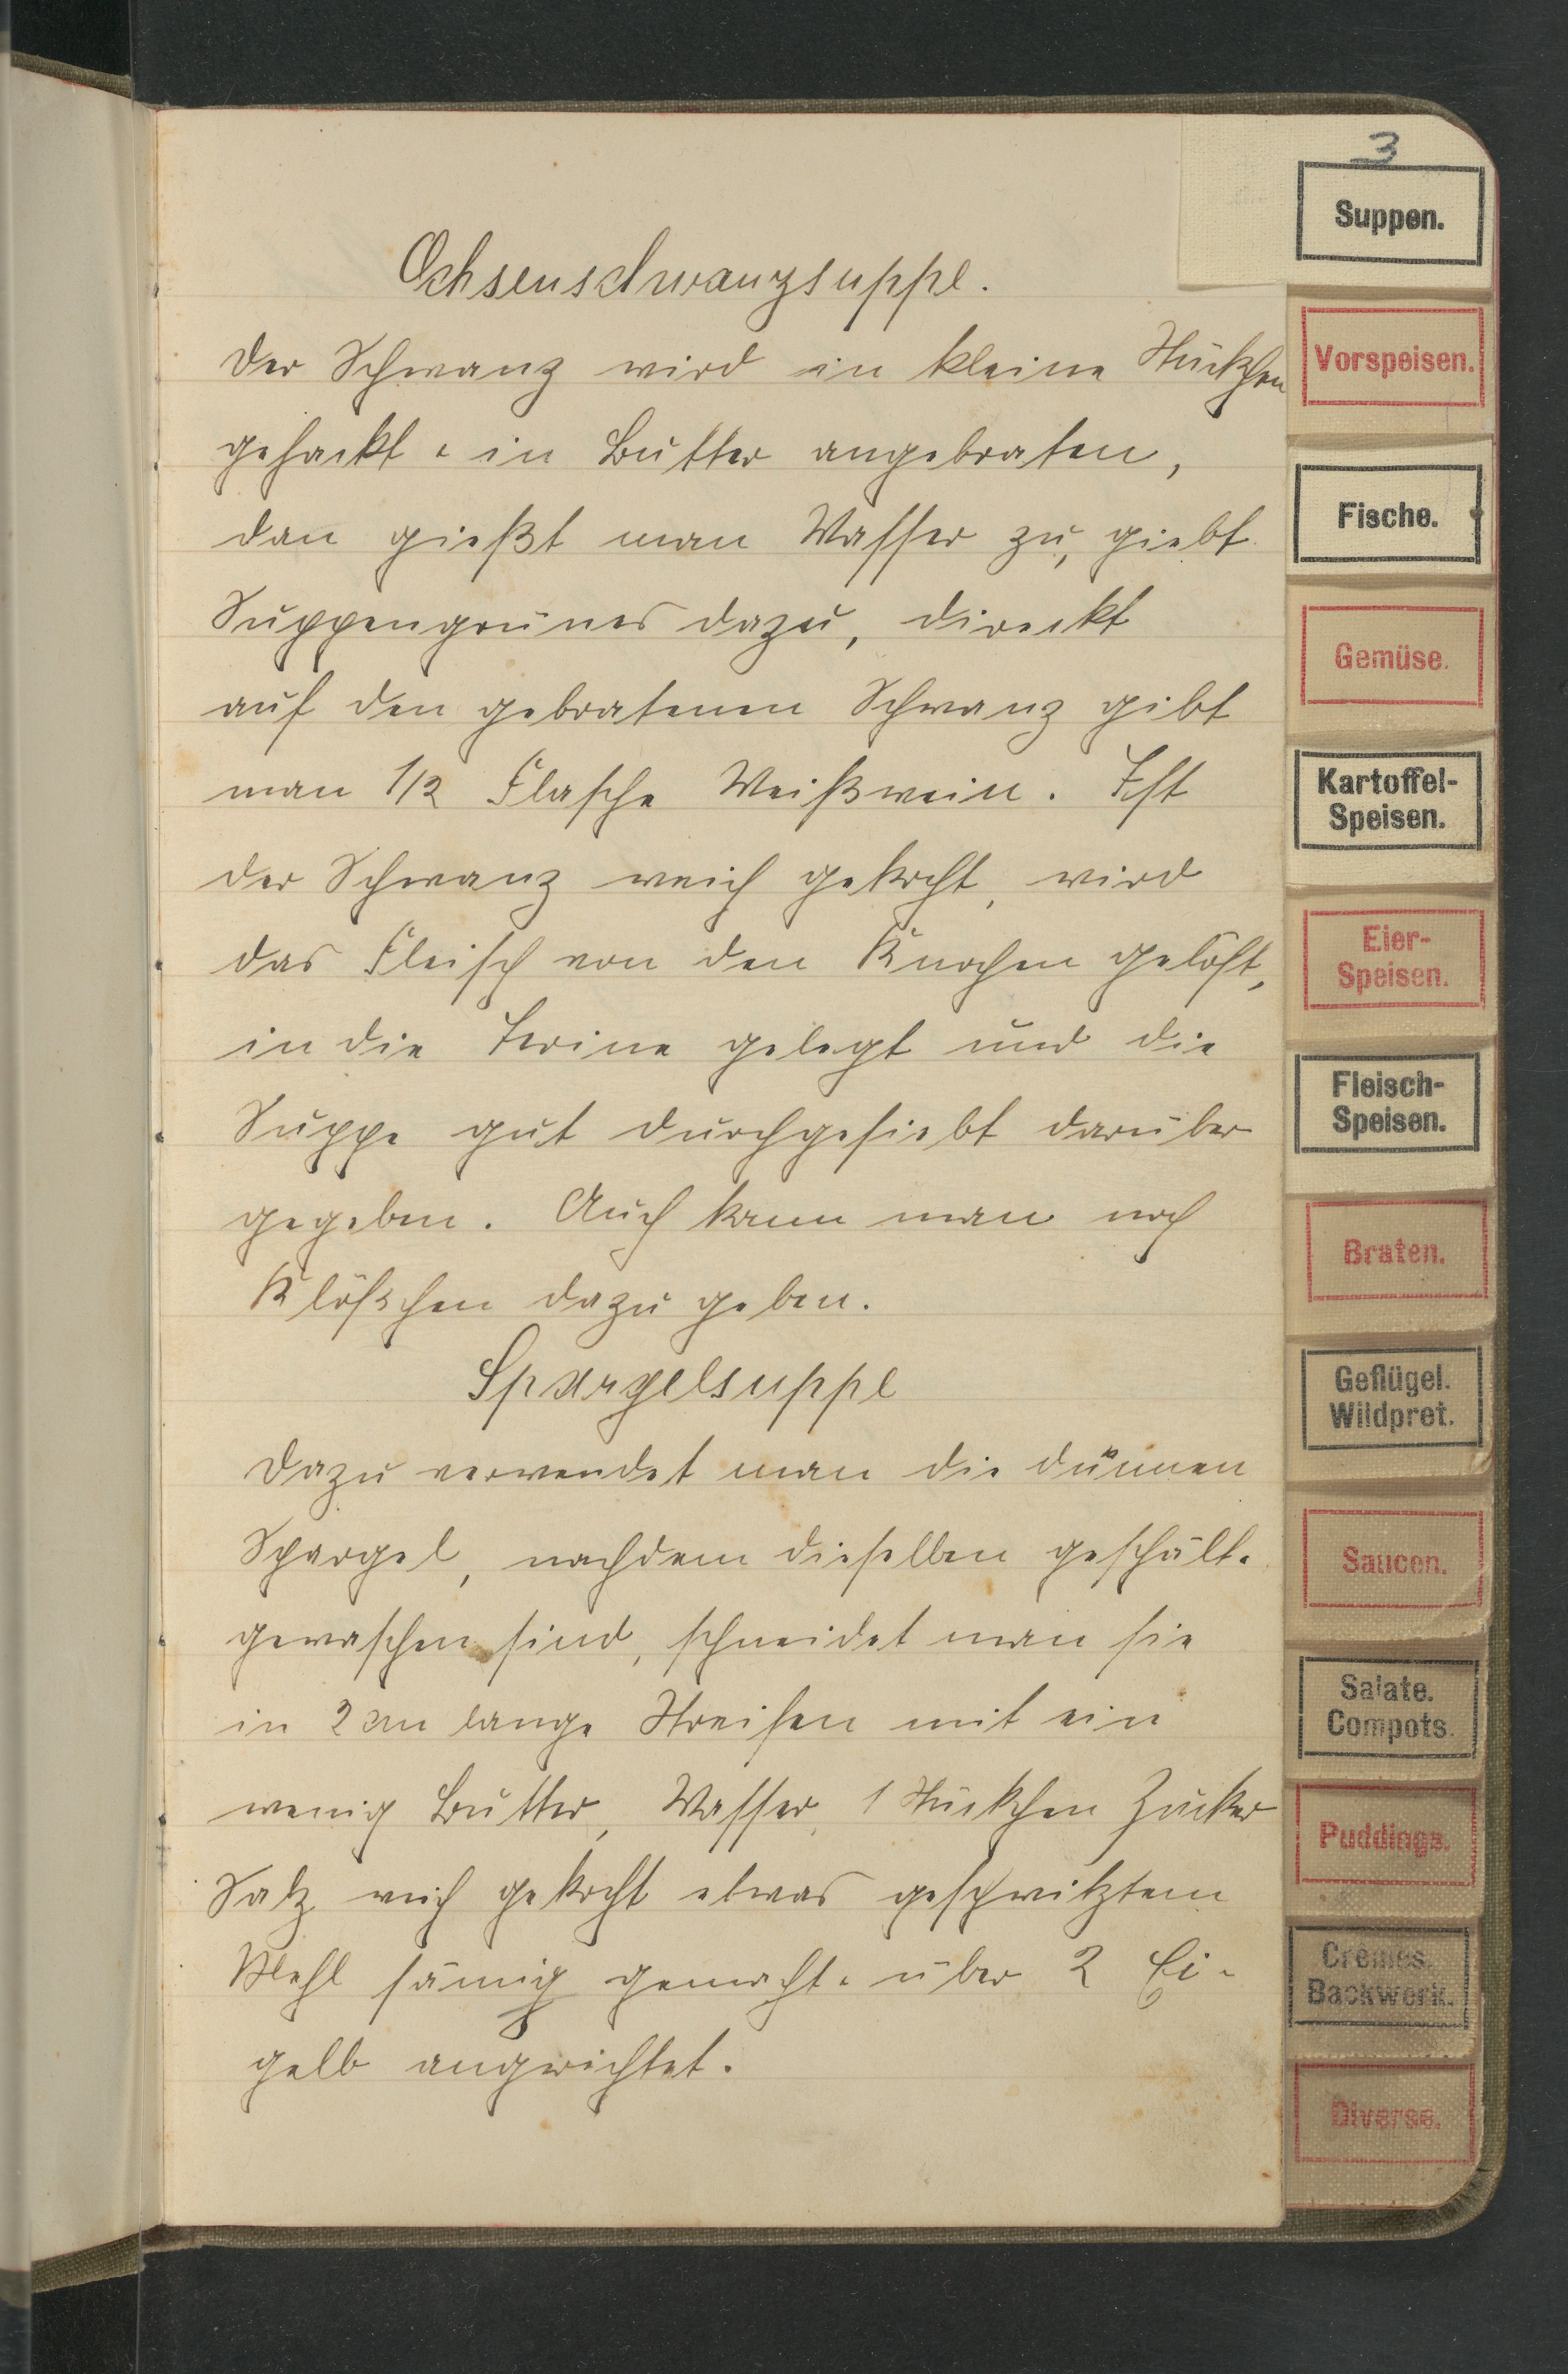 3
Suppen.
Ochsenschwanzsuppe.
Der Schwanz wird in kleine Stückchen
gehackt u. in Butter angebraten,
dan gießt man Wasser zu, giebt
Suppengrünes dazu, direckt
auf den gebratenen Schwanz gibt
man 1/2 Flasche Weißwein. Ist
der Schwanz weich gekocht, wird
das Fleisch von den Knochen gelöst,
in die Terine gelegt und die
Suppe gut durchgesiebt darüber
gegeben. Auch kann man noch
Klößchen dazu geben.
Spargelsuppe
Dazu verwendet man die dünnen
Spargel, nachdem dieselben geschält u.
gewaschen sind, schneidet man sie
in 2 cm lange Streifen mit ein
wenig Butter, Wasser, 1 Stückchen Zucker
Salz weich gekocht etwas geschwitztem
Mehl sämig gemacht u. über 2 Ei-
gelb angerichtet.
Vorspeisen.
Fische.
Gemüse.
Kartoffel-
Speisen.
Eier-
Speisen.
Fleisch-
Speisen.
Braten.
Geflügel.
Wildpret.
Saucen.
Salate.
Compots.
Puddings.
Crèmes.
Backwerk.
Diverse.